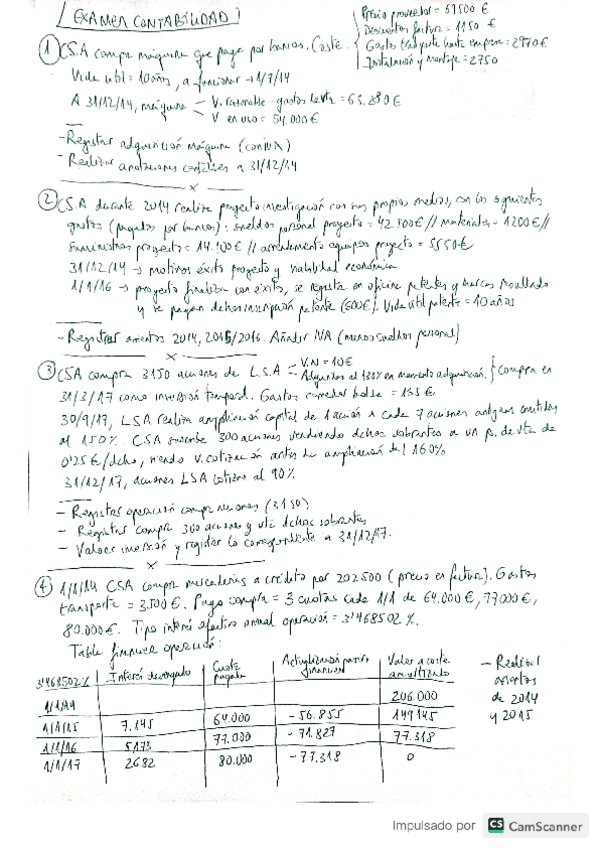 EXAMEN CONTABILIDAD
Precio proveedor = 61500 €
Descuentos factura = 1150 €
Gastos transporte hasta empresa = 2970 €
Instalación y montaje = 2750
① CSA compra máquina que paga por bancos. Coste
Vida util = 10 años, a funcionar → 1/7/14
A 31/12/14, máquina V. razonable gastos venta = 65.280 €
V en uso = 54.000 €
- Registrar adquisición máquina (con IVA)
- Realizar anotaciones contables a 31/12/14
x
② CSA durante 2014 realiza proyecto investigación con sus propios medios, con los siguientes
gastos (pagados por bancos): sueldos personal proyecto = 42.500 € // materiales = 1200 € //
suministros proyecto = 14.100 € // arrendamiento equipos proyecto = 5550 €
31/12/14 → motivos éxito proyecto y viabilidad económica
1/1/16 → proyecto finaliza con éxito, se registra en oficina patentes y marcas resultado
y se pagan dchos inscripción patente (600€). Vida útil patente = 10 años
- Registrar asientos 2014, 2015/2016. Añadir IVA (menos sueldos personal)
x
③ CSA compra 3150 acciones de L.S.A V.N = 10 €
Adquiridas al 120% en momento adquisición. } Compra en
31/3/17 como inversión temporal. Gastos bolsa = 135 €
30/9/17, LSA realiza ampliación capital de 1 acción x cada 7 acciones antiguas emitidas
al 150%. CSA suscribe 300 acciones vendiendo dchos sobrantes a un p. de vta de
0'25 €/dcho, siendo v. cotización antes de ampliación del 160%
31/12/17, acciones LSA cotizan al 90%
- Registrar operación compra acciones (3150)
- Registrar compra 300 acciones y vta dchos sobrantes
- Valorar inversión y registrar lo correspondiente a 31/12/17.
x
④ 1/1/14 CSA compra mercaderías a crédito por 202500 (precio en factura). Gastos
transporte = 3.500 €. Pago compra = 3 cuotas cada 1/1 de 64.000 €, 77000 €,
80.000 €. Tipo interés efectivo anual operación = 3'468502 %.
Tabla financiera operación:
3'468502 % Interés devengado Cuota pagada Actualización pasivo financiero Valor a coste amortizado
1/1/14 206.000
1/1/15 7.145 64.000 -56.855 149145
1/1/16 5173 77.000 -71.827 77.318
1/1/17 2682 80.000 -77.318 0
- Realizar
asientos
de 2014
y 2015
Impulsado por CS CamScanner